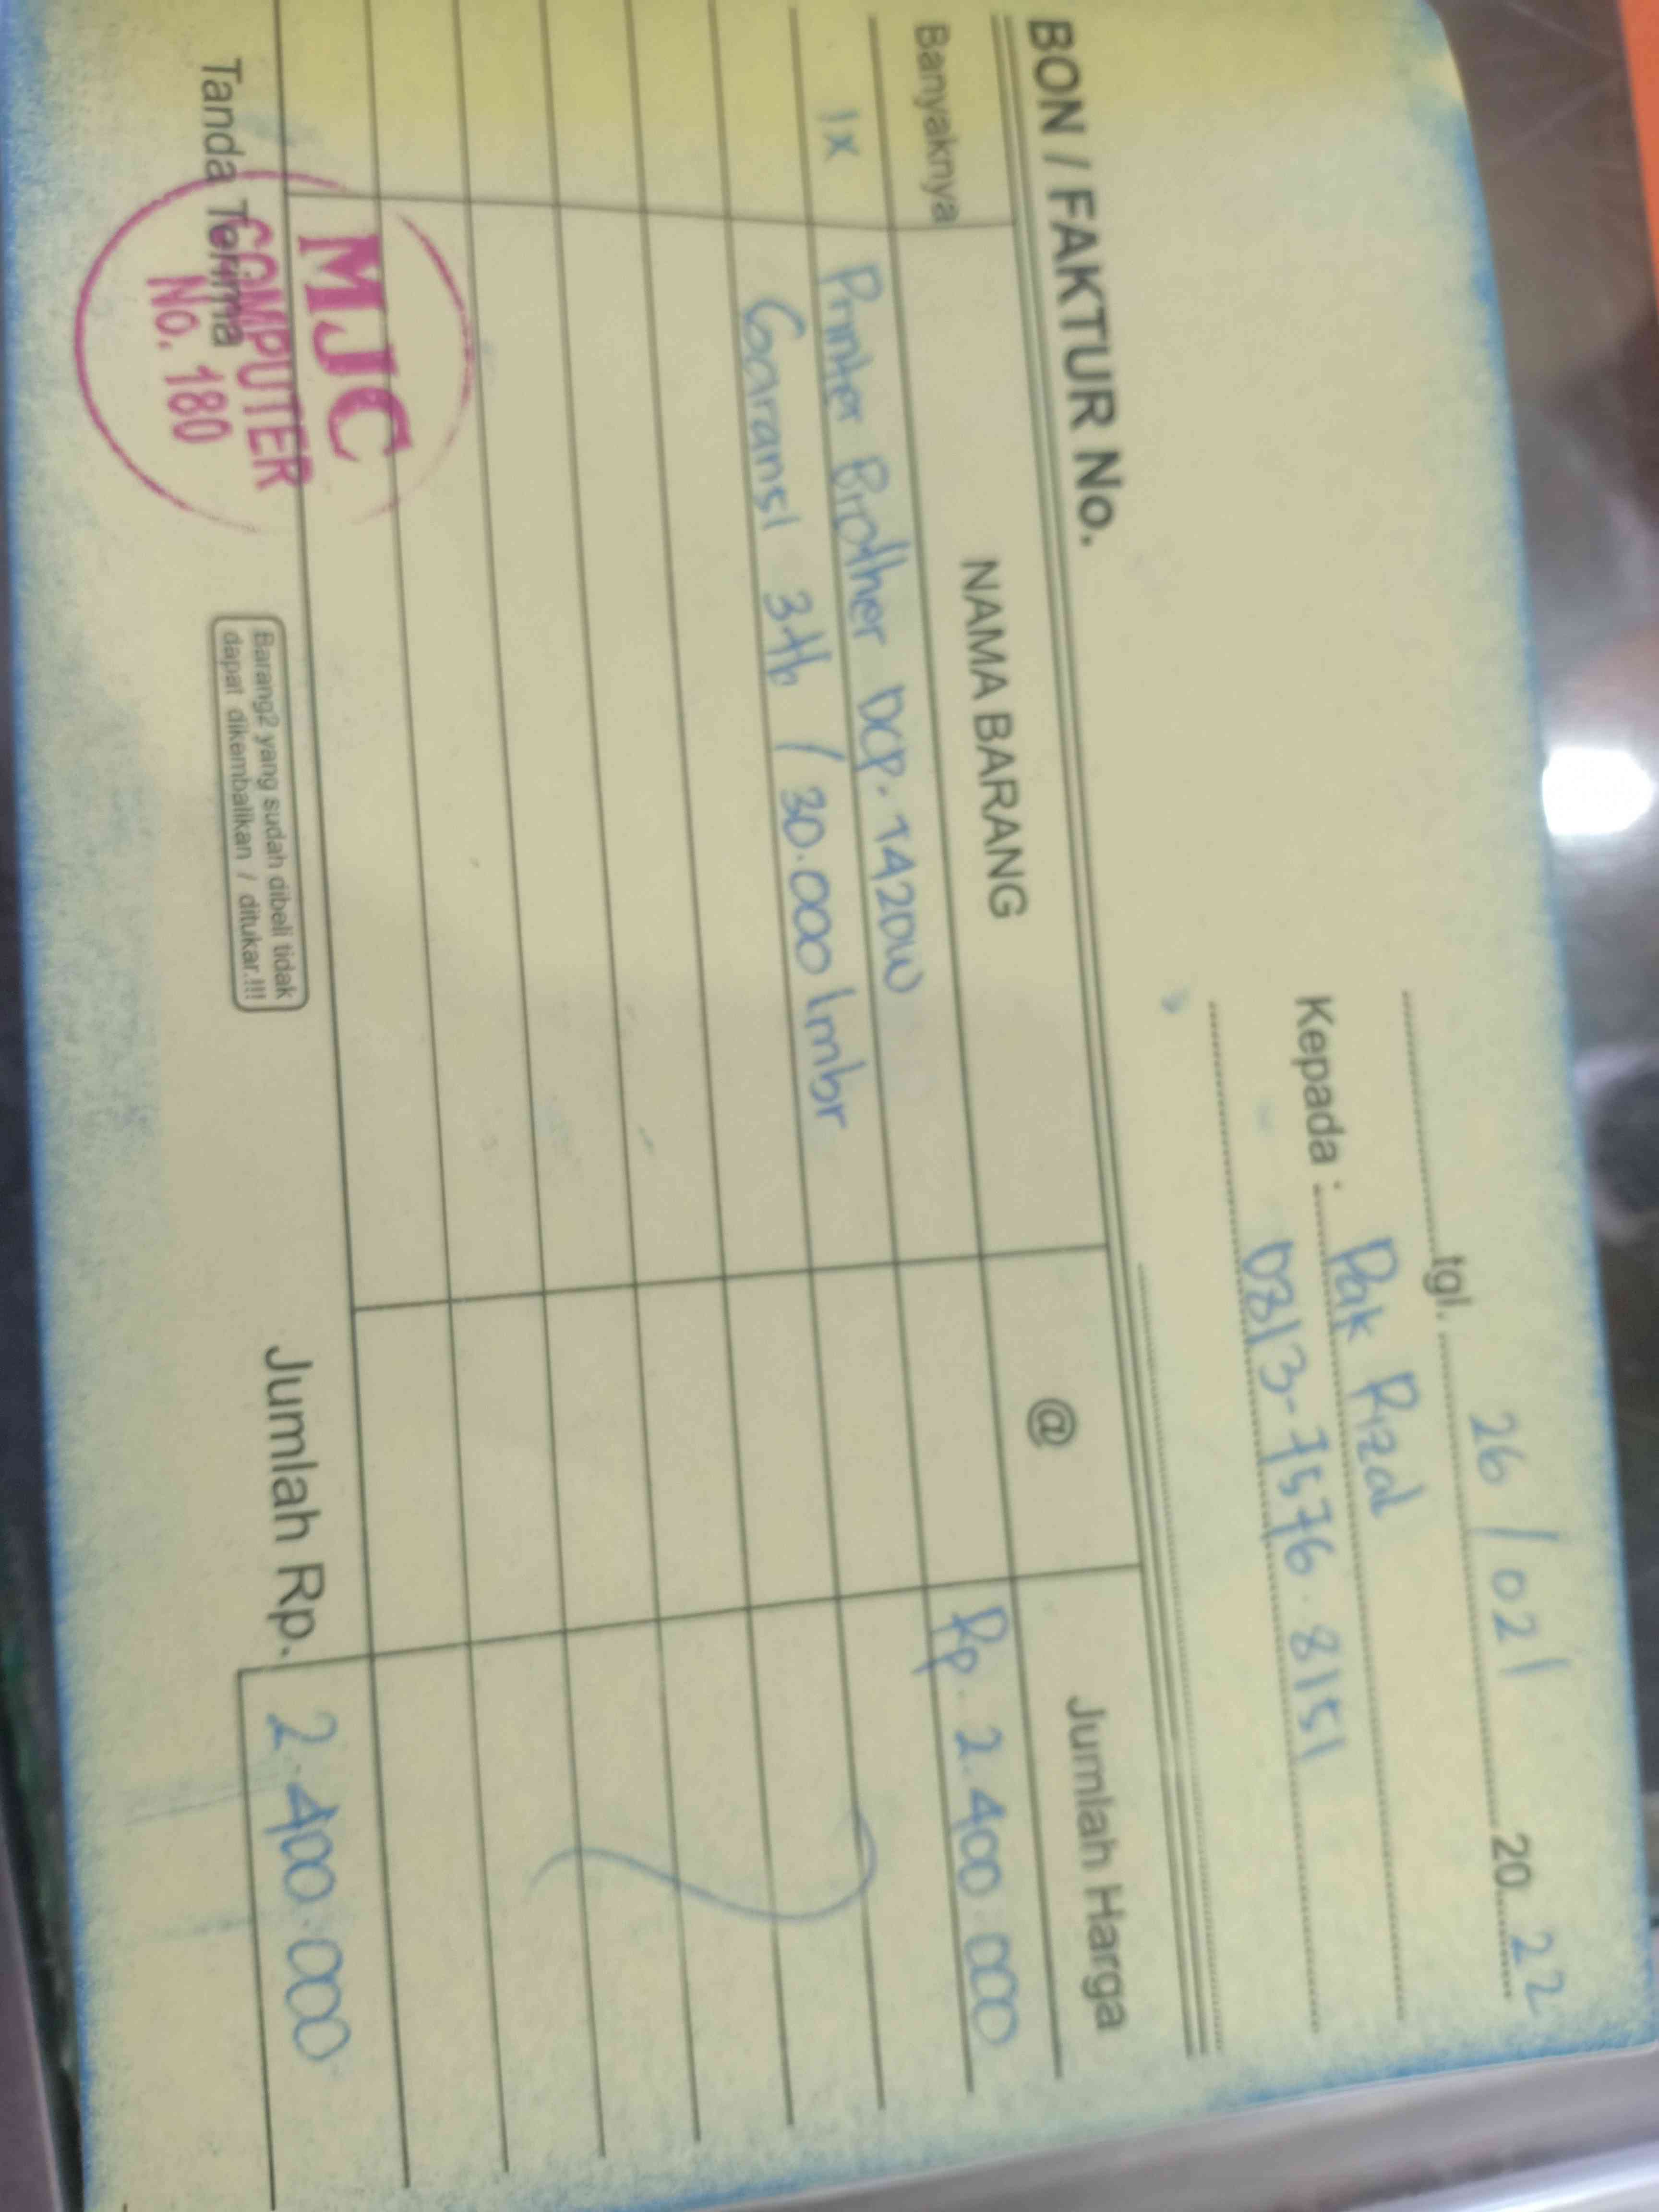 tgl. 26/02/ 2022
Kepada : Pak Rizal
0813-7576.8151
BON / FAKTUR No.
Banyaknya NAMA BARANG @ Jumlah Harga
1x Printer Brother DCP. T420W Rp. 2.400.000
Garansi 3th / 30.000 lmbr
Tanda Terima
MJC
COMPUTER
No. 180
Barang2 yang sudah dibeli tidak
dapat dikembalikan / ditukar.!!!
Jumlah Rp. 2.400.000